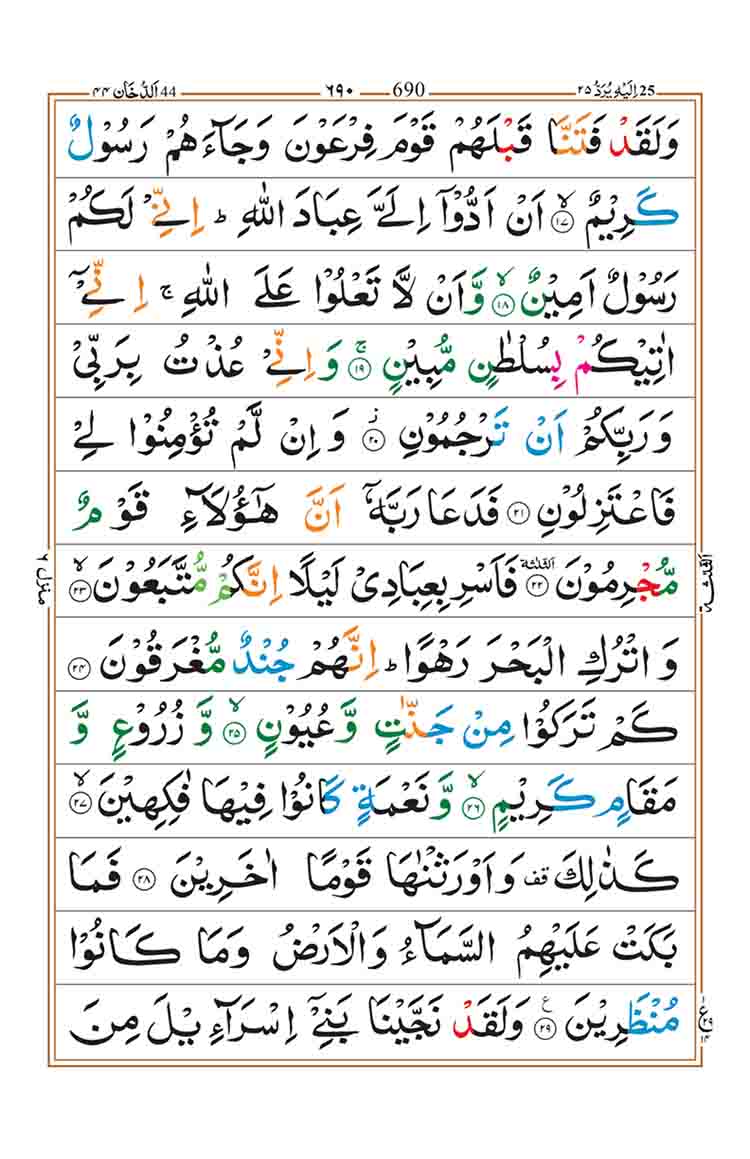 اِلَیْهِ یُرَدُّ ۲۵ 25 690 ۶۹۰ اَلدُّخَان ۴۴ 44
وَلَقَدْ فَتَنَّا قَبْلَهُمْ قَوْمَ فِرْعَوْنَ وَجَآءَهُمْ رَسُوْلٌ
كَرِيْمٌ ۙ‏﴿۱۷﴾ اَنْ اَدُّوْۤا اِلَىَّ عِبَادَ اللّٰهِ‌ؕ اِنِّىْ لَكُمْ
رَسُوْلٌ اَمِيْنٌ ۙ‏﴿۱۸﴾ وَّاَنْ لَّا تَعْلُوْا عَلَى اللّٰهِ‌ۚ اِنِّىْۤ
اٰتِيْكُمْ بِسُلْطٰنٍ مُّبِيْنٍ‌ ۚ‏﴿۱۹﴾ وَاِنِّىْ عُذْتُ بِرَبِّىْ
وَرَبِّكُمْ اَنْ تَرْجُمُوْنِ ز‏﴿۲۰﴾ وَاِنْ لَّمْ تُؤْمِنُوْا لِىْ
فَاعْتَزِلُوْنِ‏﴿۲۱﴾ فَدَعَا رَبَّهٗۤ اَنَّ هٰٓؤُلَاۤءِ قَوْمٌ
مُّجْرِمُوْنَ الثلٰثة‏﴿۲۲﴾ فَاَسْرِ بِعِبَادِىْ لَيْلًا اِنَّكُمْ مُّتَّبَعُوْنَۙ‏﴿۲۳﴾
وَاتْرُكِ الْبَحْرَ رَهْوًا‌ؕ اِنَّهُمْ جُنْدٌ مُّغْرَقُوْنَ‏﴿۲۴﴾
كَمْ تَرَكُوْا مِنْ جَنّٰتٍ وَّعُيُوْنٍۙ‏﴿۲۵﴾ وَّزُرُوْعٍ وَّ
مَقَامٍ كَرِيْمٍۙ‏﴿۲۶﴾ وَّنَعْمَةٍ كَانُوْا فِيْهَا فٰكِهِيْنَۙ‏﴿۲۷﴾
كَذٰلِكَ قف وَاَوْرَثْنٰهَا قَوْمًا اٰخَرِيْنَ‏﴿۲۸﴾ فَمَا
بَكَتْ عَلَيْهِمُ السَّمَآءُ وَالْاَرْضُ وَمَا كَانُوْا
مُنْظَرِيْنَ ع‏﴿۲۹﴾ وَلَقَدْ نَجَّيْنَا بَنِىْۤ اِسْرَآءِيْلَ مِنَ
الثلٰثة
منزل ۶